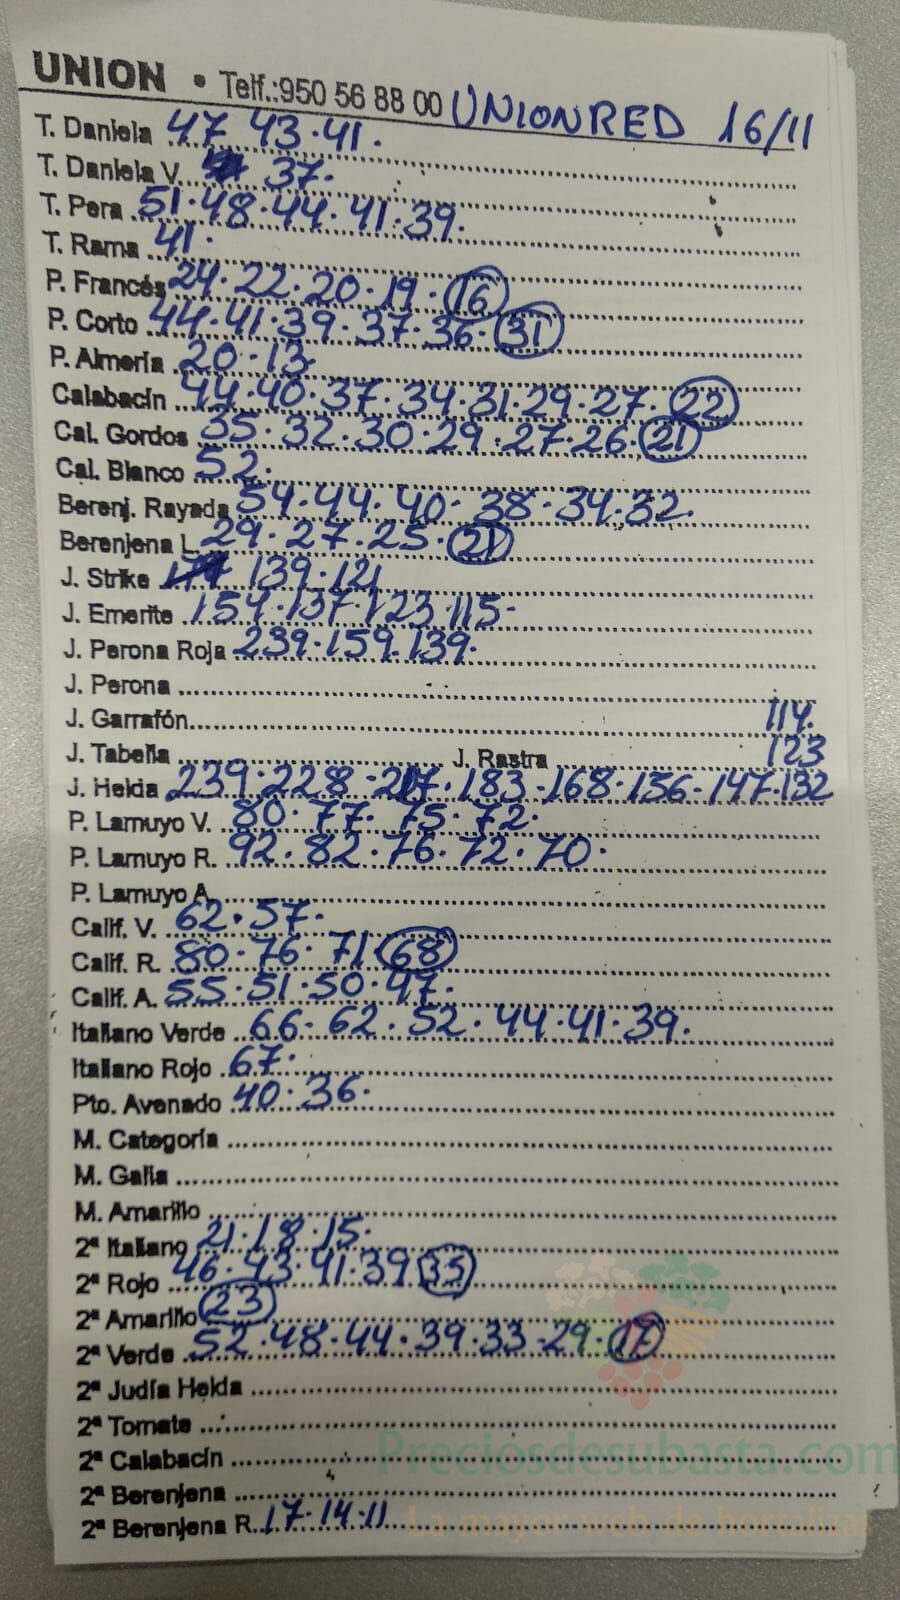 UNION • Telf.:950 56 88 00 UNIONRED 16/11
T. Daniela 47 43·41.
T. Daniela V. 37.
T. Pera 51·48·44·41·39.
T. Rama 41.
P. Francés 24·22·20·19·16
P. Corto 44·41·39·37·36·31
P. Almería 20·13
Calabacín 44·40·37·34·31·29·27·22
Cal. Gordos 35·32·30·29·27·26·21
Cal. Blanco 52.
Berenj. Rayada 54·44·40·38·34·32.
Berenjena L. 29·27·25·21
J. Strike 139·121
J. Emerite 154·137·123·115·
J. Perona Roja 239·159·139·
J. Perona
J. Garrafón 114.
J. Tabella J. Rastra 123
J. Helda 239·228-217·183-168·156-147·132
P. Lamuyo V. 80·77·75·72·
P. Lamuyo R. 92·82·76·72·70·
P. Lamuyo A.
Calif. V. 62·57·
Calif. R. 80·76·71·68
Calif. A. 55·51·50·47·
Italiano Verde 66-62·52·44·41·39.
Italiano Rojo 67·
Pto. Avenado 40·36·
M. Categoría
M. Galia
M. Amarillo
2ª Italiano 21·18·15·
2ª Rojo 46·43·41·39 35
2ª Amarillo 23
2ª Verde 52·48·44·39·33-29·17
2ª Judía Helda
2ª Tomate
2ª Calabacín
2ª Berenjena
2ª Berenjena R. 17·14·11
Preciosdesubasta.com
La mayor web de hortalizas